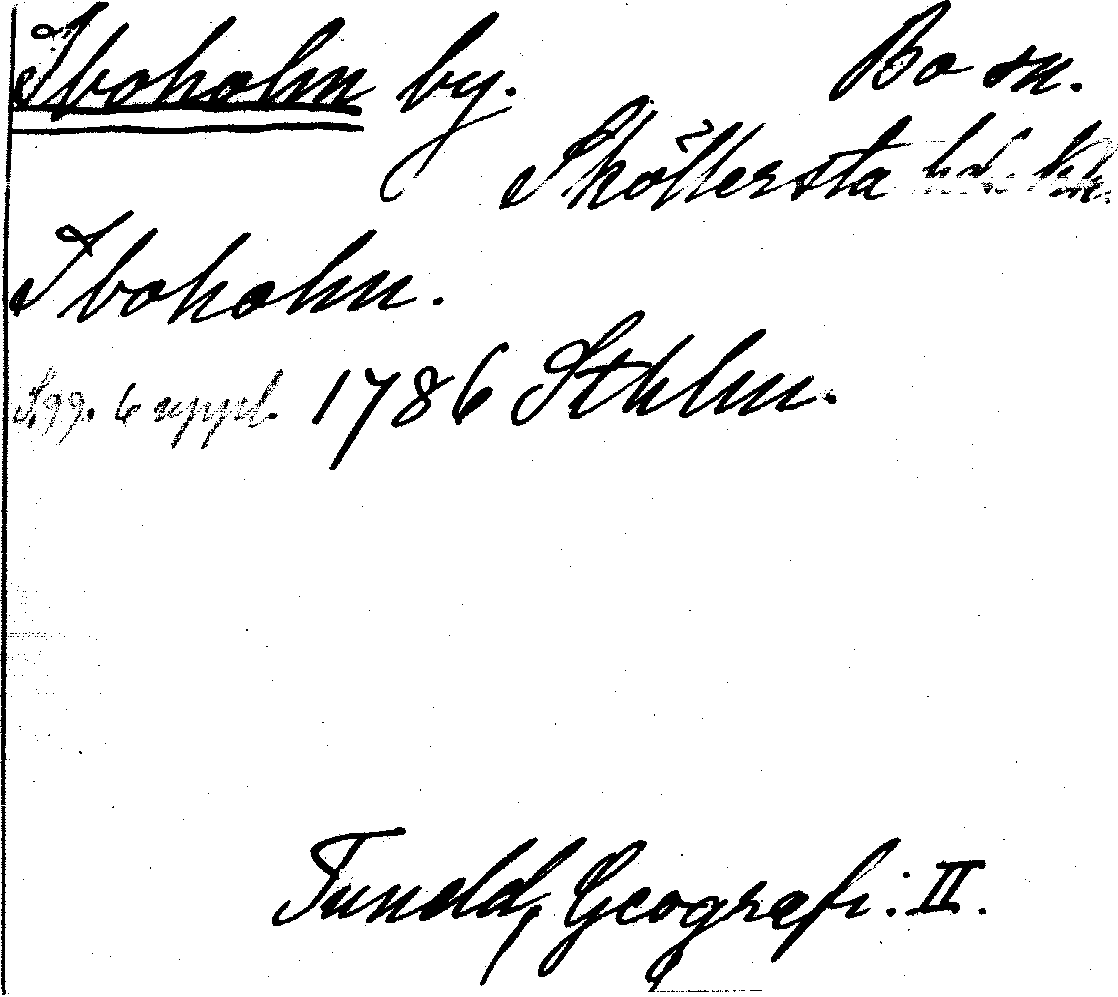 Iboholm by. Bo sn.
Sköllersta
Iboholm.
6 uppl. 1786 Sthlm.
Tuneld, Geografi: II.